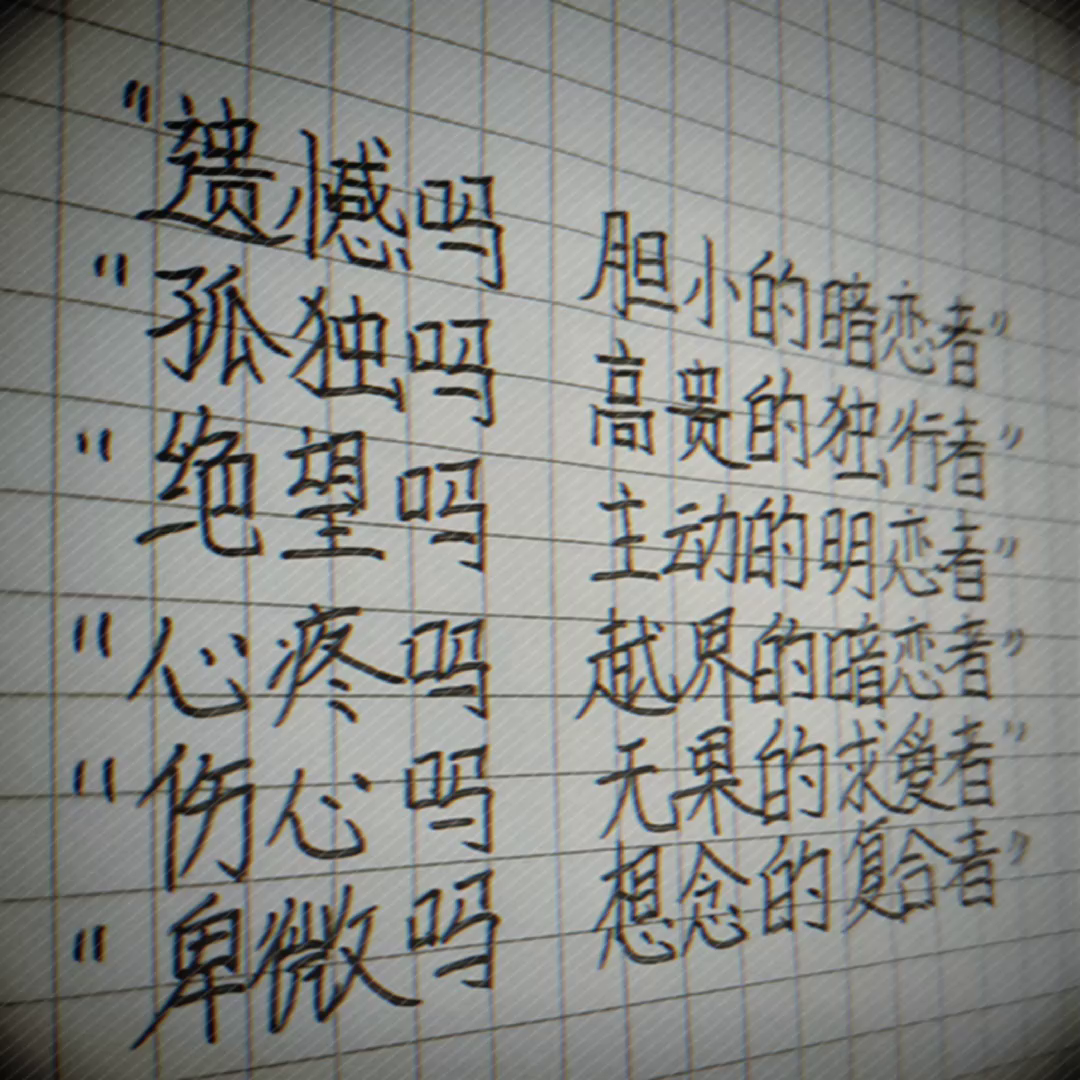 "遗憾吗 胆小的暗恋者"
"孤独吗 高贵的独行者"
"绝望吗 主动的明恋者"
"心疼吗 越界的暗恋者"
"伤心吗 无果的求爱者"
"卑微吗 想念的复合者"